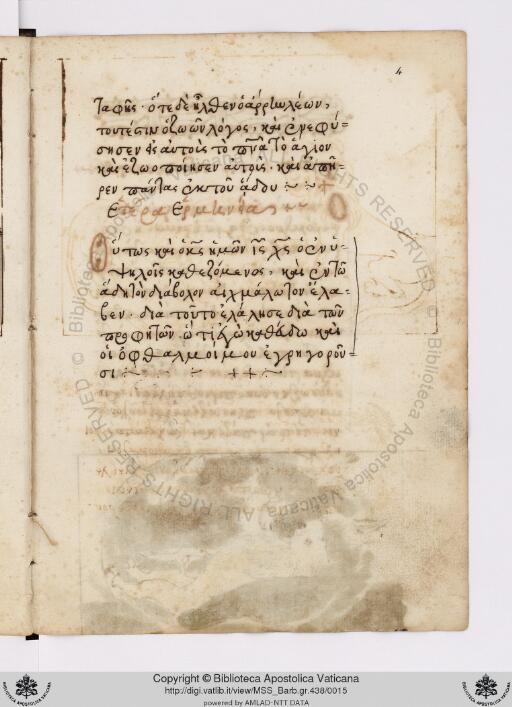 4
ταφῆς· ὅτε δὲ ἦλθεν ὁ ἄρρην λέων,
τουτέστιν ὁ ζῶων λόγος, καὶ ἐνεφύ-
σησεν εἰς αὐτοὺς τὸ πνα τὸ ἅγιον
καὶ ἐζωοποίησεν αὐτοὺς· καὶ ἀπῆ-
ρεν πάντας ἐκ τοῦ ἅδου
Ἑτέρα Ἑρμηνεία
Οὕτως καὶ ὁ κς ἡμῶν ις χς ὁ ἐν ὑ-
ψηλοῖς καθεζόμενος, καὶ ἐν τῶ
ἅδη τὸν διάβολον αἰχμάλωτον ἔλα-
βεν· διὰ τοῦτο ἐλάλησε διὰ τῶν
προφητῶν. ὡτι καθεύδω καὶ
οἱ ὀφθαλμοί μου ἐγρηγοροῦ-
σι
Copyright © Biblioteca Apostolica Vaticana
http://digi.vatlib.it/view/MSS_Barb.gr.438/0015
powered by AMLAD-NTT DATA